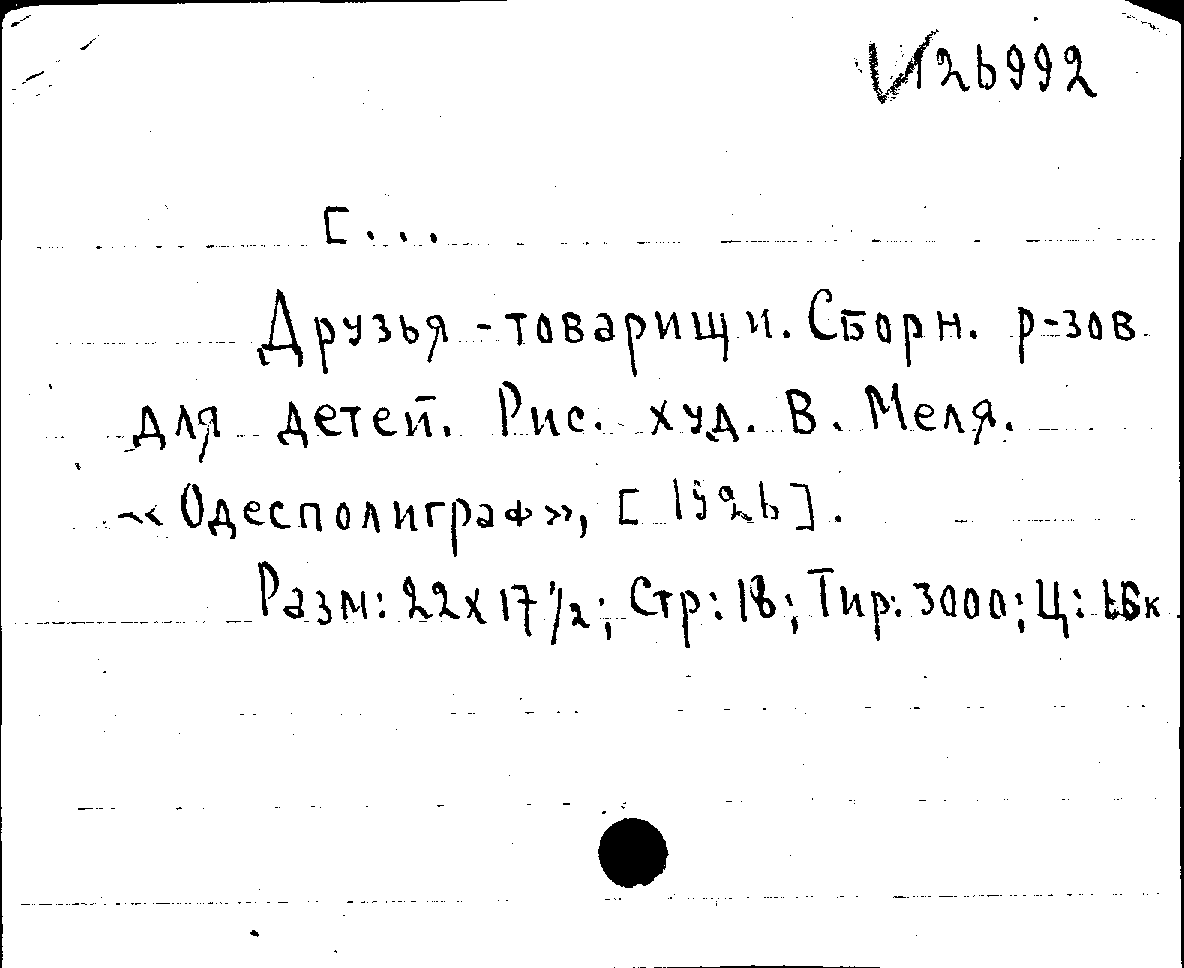 √126992
[...
Друзья-товарищи. Сборн. р-зов
для детей. Рис. худ. В. Меля.
-«Одесполиграф», [1926].
Разм: 22х17 1/2; Стр: 18; Тир: 3000; Ц: